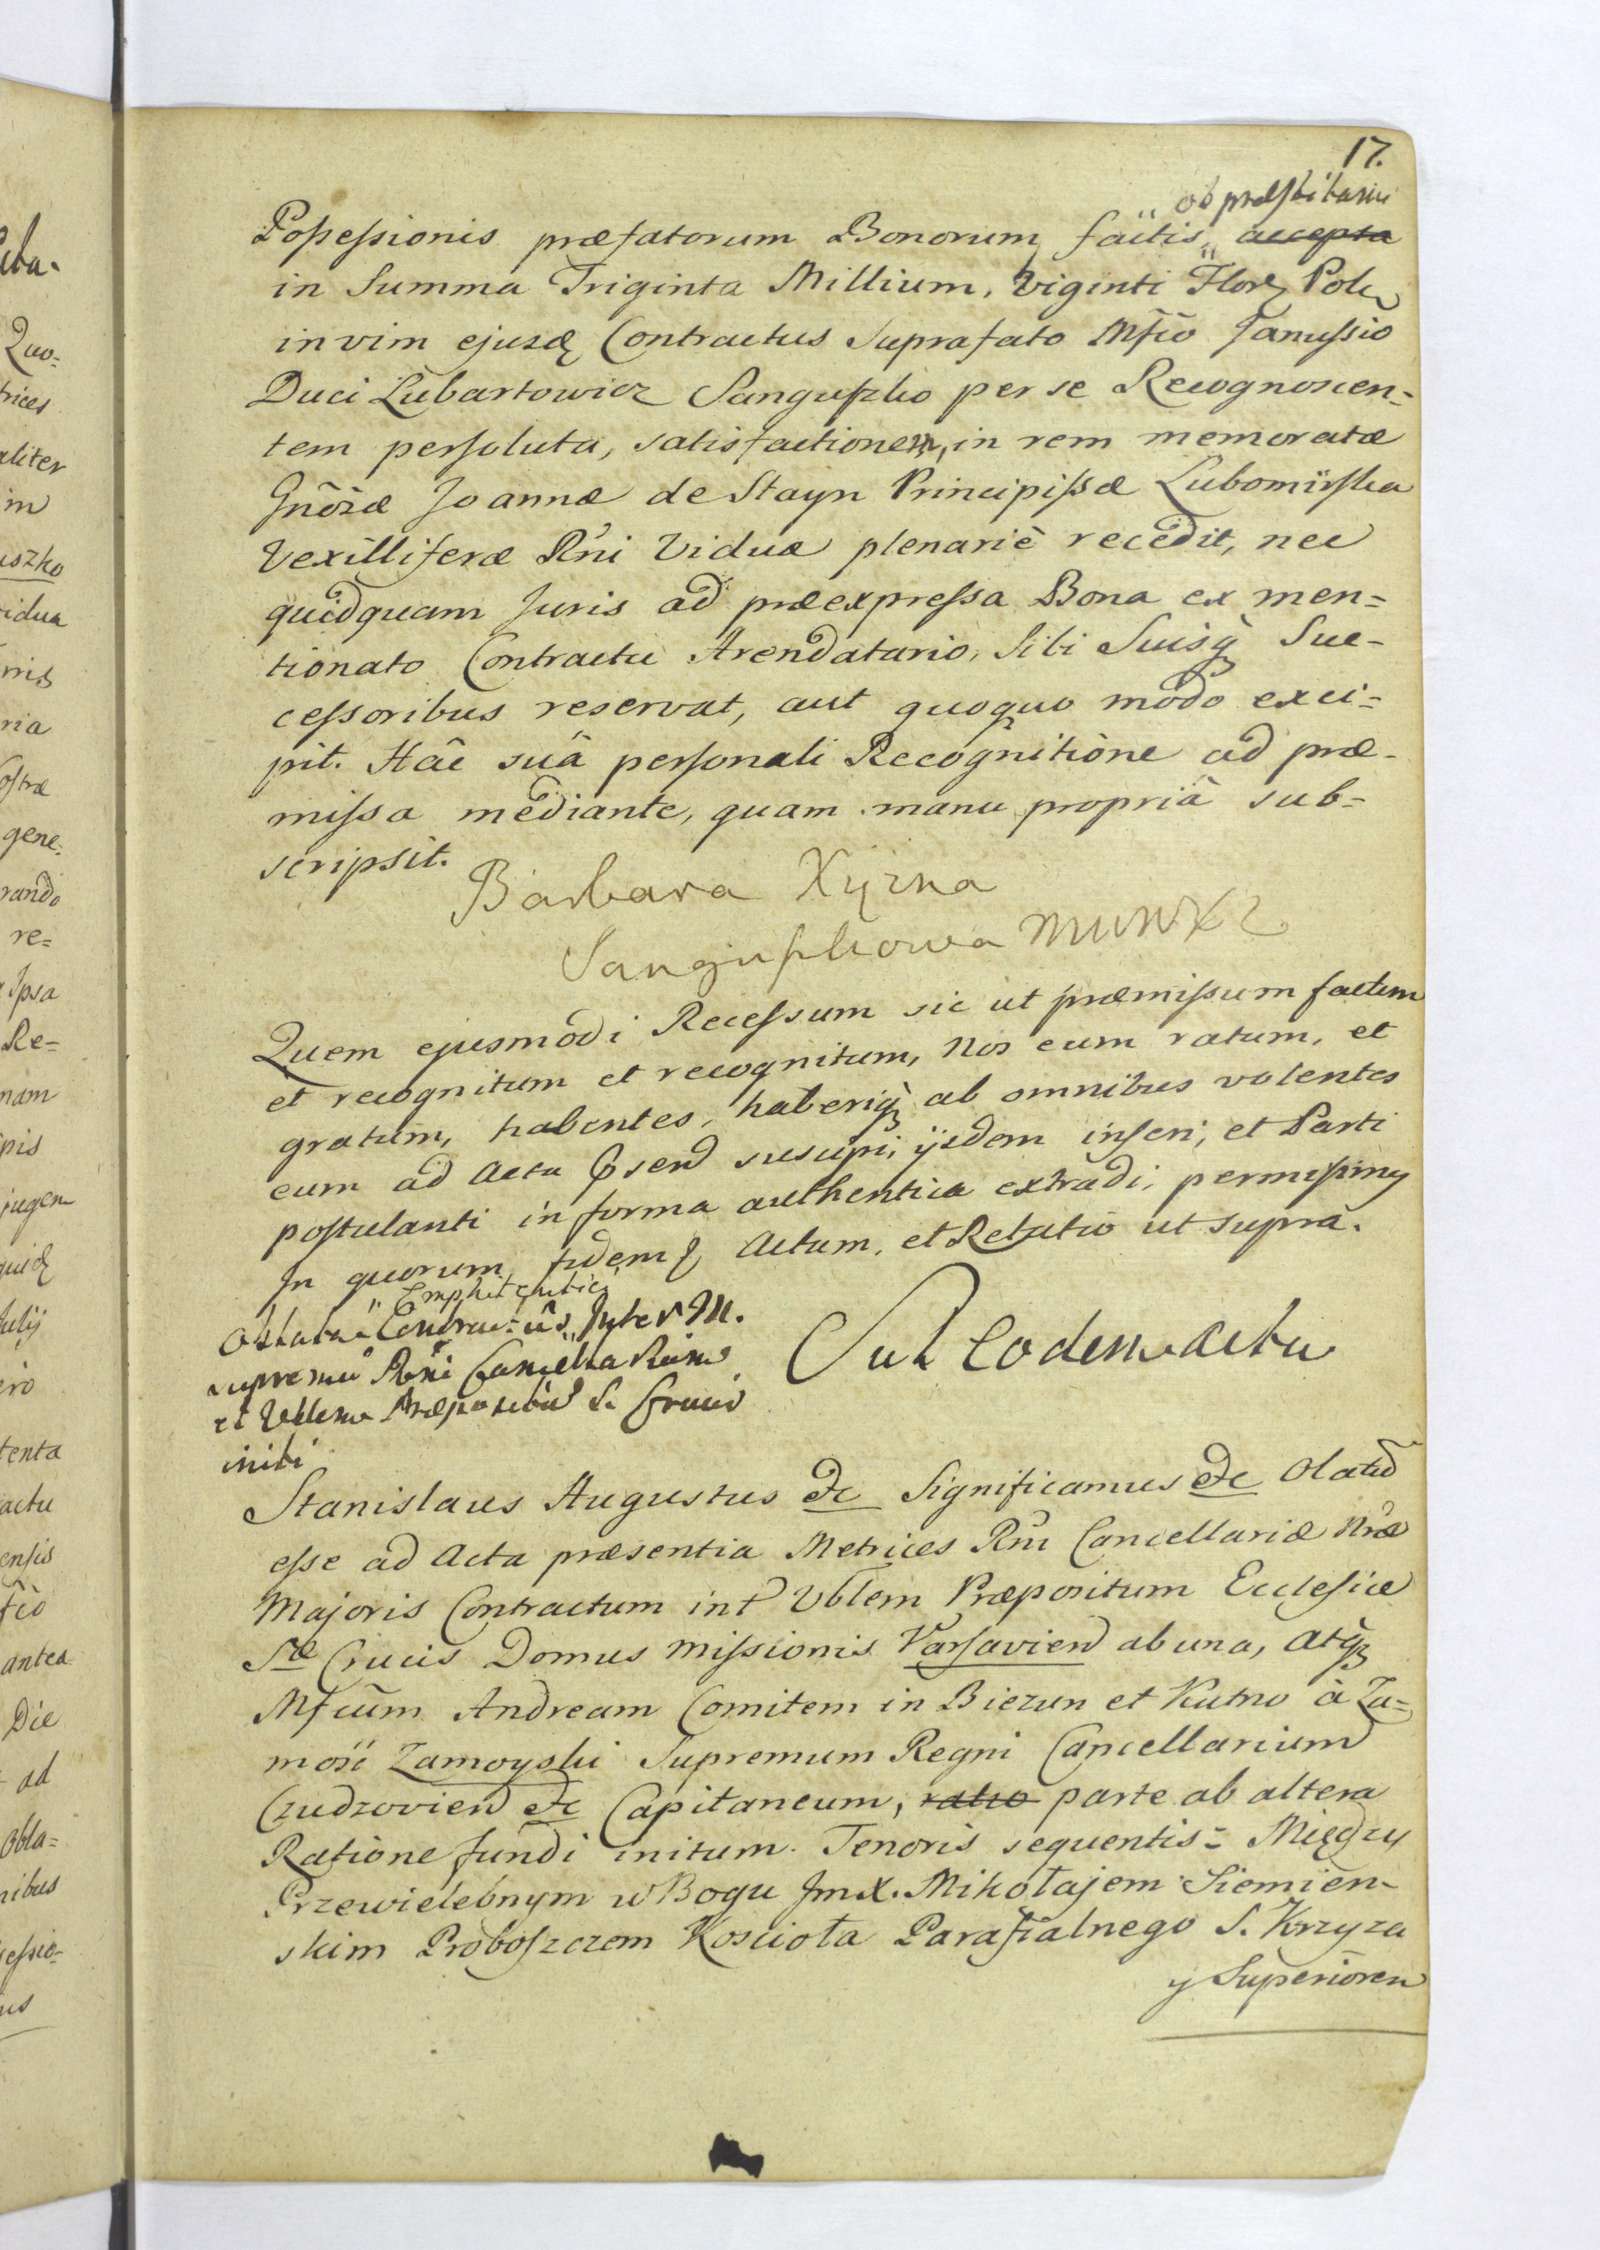 17.
ob præstitam
Possessionis præfatorum Bonorum factis, accepta
in Summa Triginta Millium, Viginti Flor Pol
in vim ejusd Contractus Suprafato Mfco Janussio
Duci Lubartowicz Sanguszko per se Recognoscen=
tem persoluta, satisfactionem, in rem memoratæ
Gñosæ Joannæ de Stayn Principissæ Lubomirska
Vexilliferæ Rni Viduæ plenariè recedit, nec
quidquam Juris ad præexpressa Bona ex men=
tionato Contractu Arendatario, Sibi Suisq Suc-
cessoribus reservat, aut quoquo modo exci=
pit. Hâc suâ personali Recognitione ad præ-
missa mediante, quam manu propriâ sub=
scripsit.
Barbara Xiężna
Sanguszkowa MWWXL
Quem ejusmodi Recessum sic ut præmissum factum
et recognitum et recognitum, Nos eum ratum, et
gratum, habentes, haberiq ab omnibus volentes
eum ad Acta send suscipi, ijsdem inseri, et Parti
postulanti in forma authentica extradi, permissimus
In quorum fidem Actum, et Relatio ut supra.
Emphiteutici
Oblata Contractûs Inter M.
supremū Rni Cancellarium
et Vblem Præpositum S. Crucis
initi
Sub eodem actu
Stanislaus Augustus &c Significamus &c Olatu
esse ad Acta præsentia Metrices Rni Cancellariæ Nræ
Majoris Contractum int Vblem Præpositum Ecclesiæ
Stæ Crucis Domus Missionis Varsavien ab una, atq
Mfcum Andream Comitem in Biezun et Kutno à Za=
mosc Zamoyski Supremum Regni Cancellarium
Czudzovien &c Capitaneum, ratio parte ab altera
Ratione fundi initum. Tenoris sequentis= Między
Przewielebnym w Bogu Jmx. Mikołajem Siemien-
skim Proboszczem Koscioła Parafialnego S. Krzyza
y Superiorem